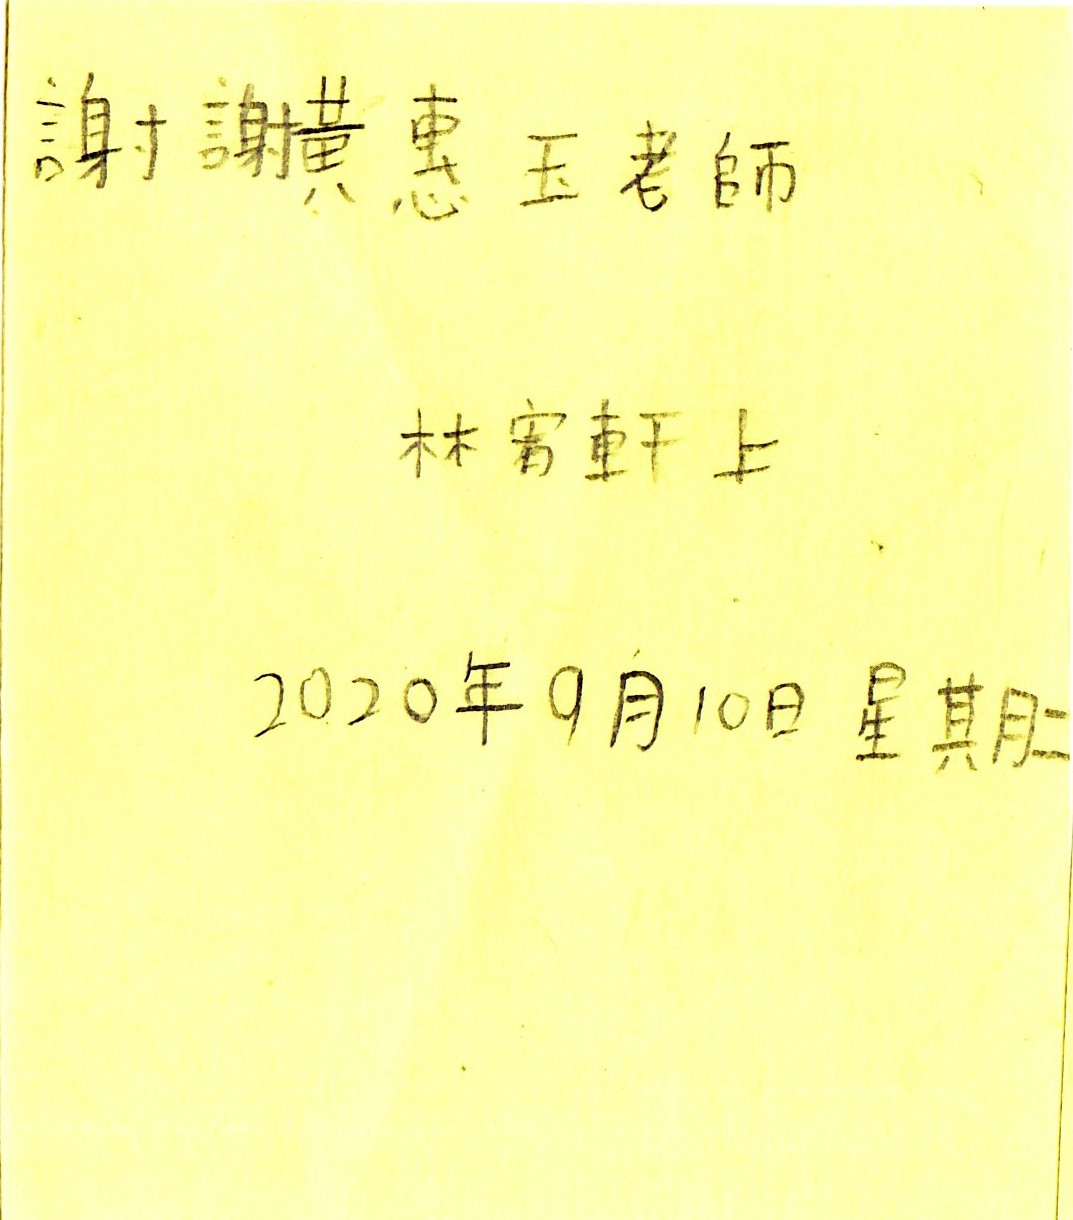 謝謝黃惠玉老師
林宥軒上
2020年9月10日 星期二